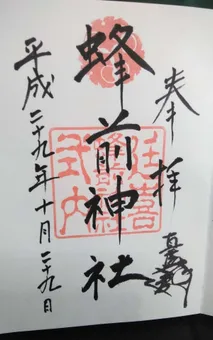 奉拝
蜂前神社
平成二十九年十月二十九日